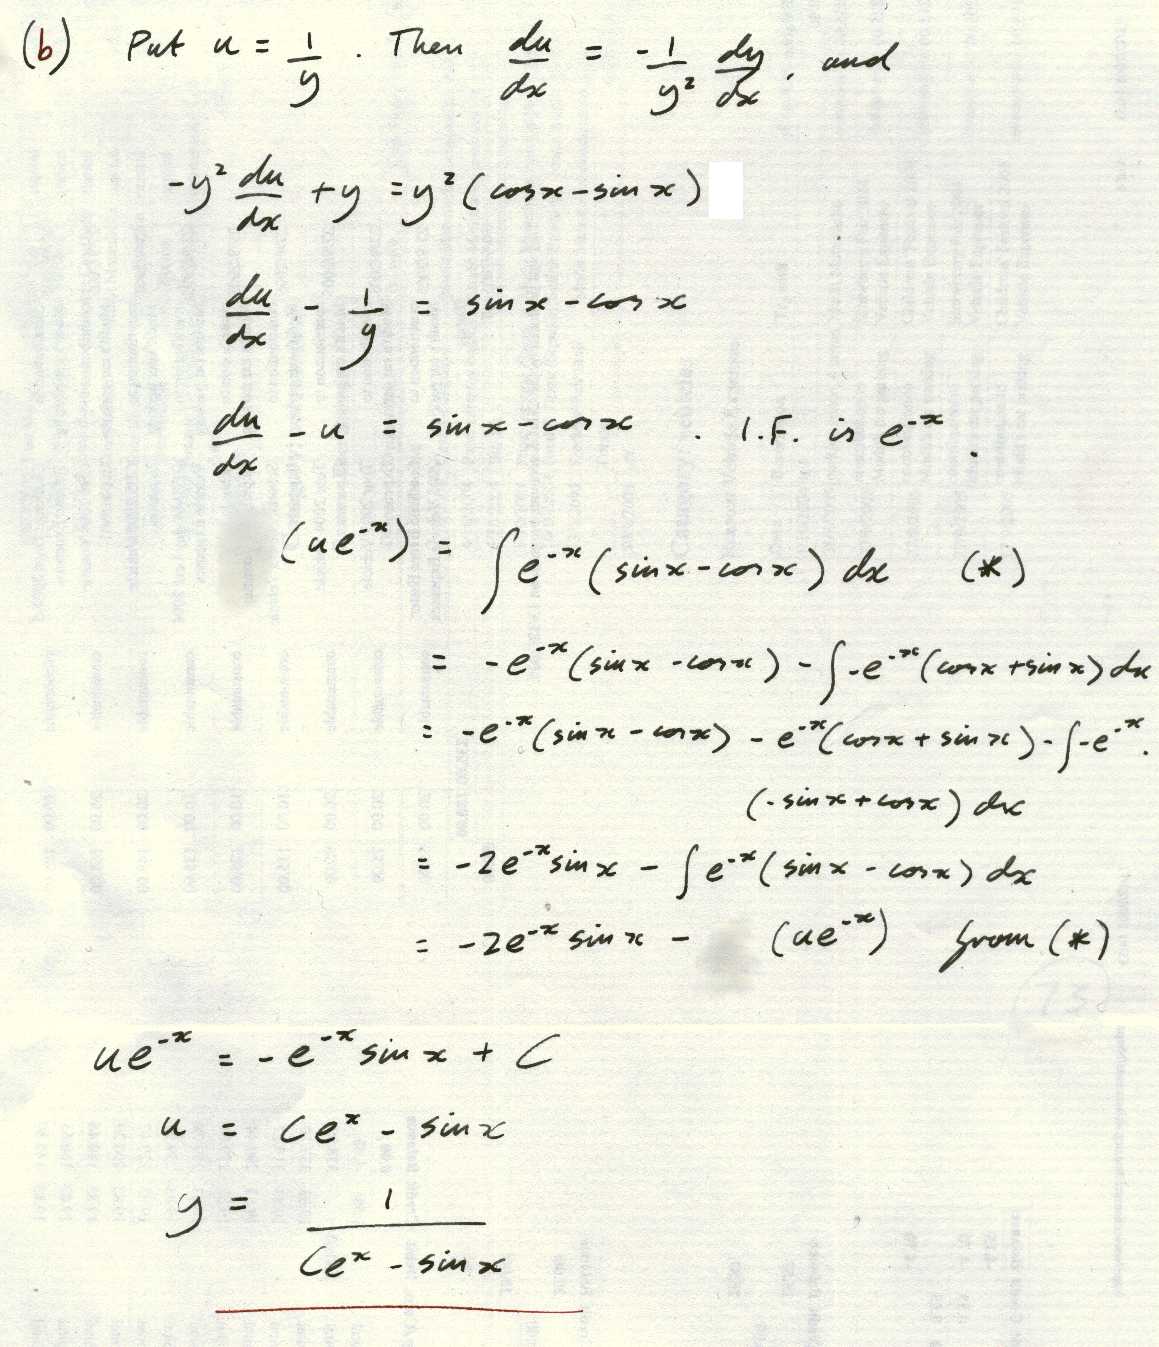 (b) Put u = 1/y . Then du/dx = -1/y² dy/dx , and
-y² du/dx + y = y² (cos x - sin x)
du/dx - 1/y = sin x - cos x
du/dx - u = sin x - cos x . I.F. is e^{-x} .
(ue^{-x}) = ∫ e^{-x} (sin x - cos x) dx (*)
= -e^{-x} (sin x - cos x) - ∫ -e^{-x} (cos x + sin x) dx
= -e^{-x} (sin x - cos x) - e^{-x} (cos x + sin x) - ∫ -e^{-x} .
(-sin x + cos x) dx
= -2e^{-x} sin x - ∫ e^{-x} (sin x - cos x) dx
= -2e^{-x} sin x - (ue^{-x}) from (*)
ue^{-x} = -e^{-x} sin x + C
u = Ce^x - sin x
y = 1/(Ce^x - sin x)